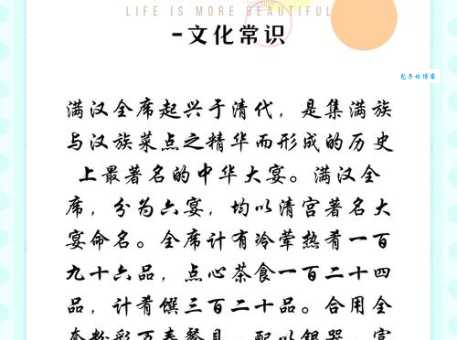 LIFE IS MORE BEAUTIFUL
-文化常识
满汉全席起兴于清代，是集满族
与汉族菜点之精华而形成的历史
上最著名的中华大宴。满汉全
席，分为六宴，均以清宫著名大
宴命名。全席计有冷荤热肴一百
九十六品，点心茶食一百二十四
品，计肴馔三百二十品。合用全
套粉彩万寿餐具，配以银器，富